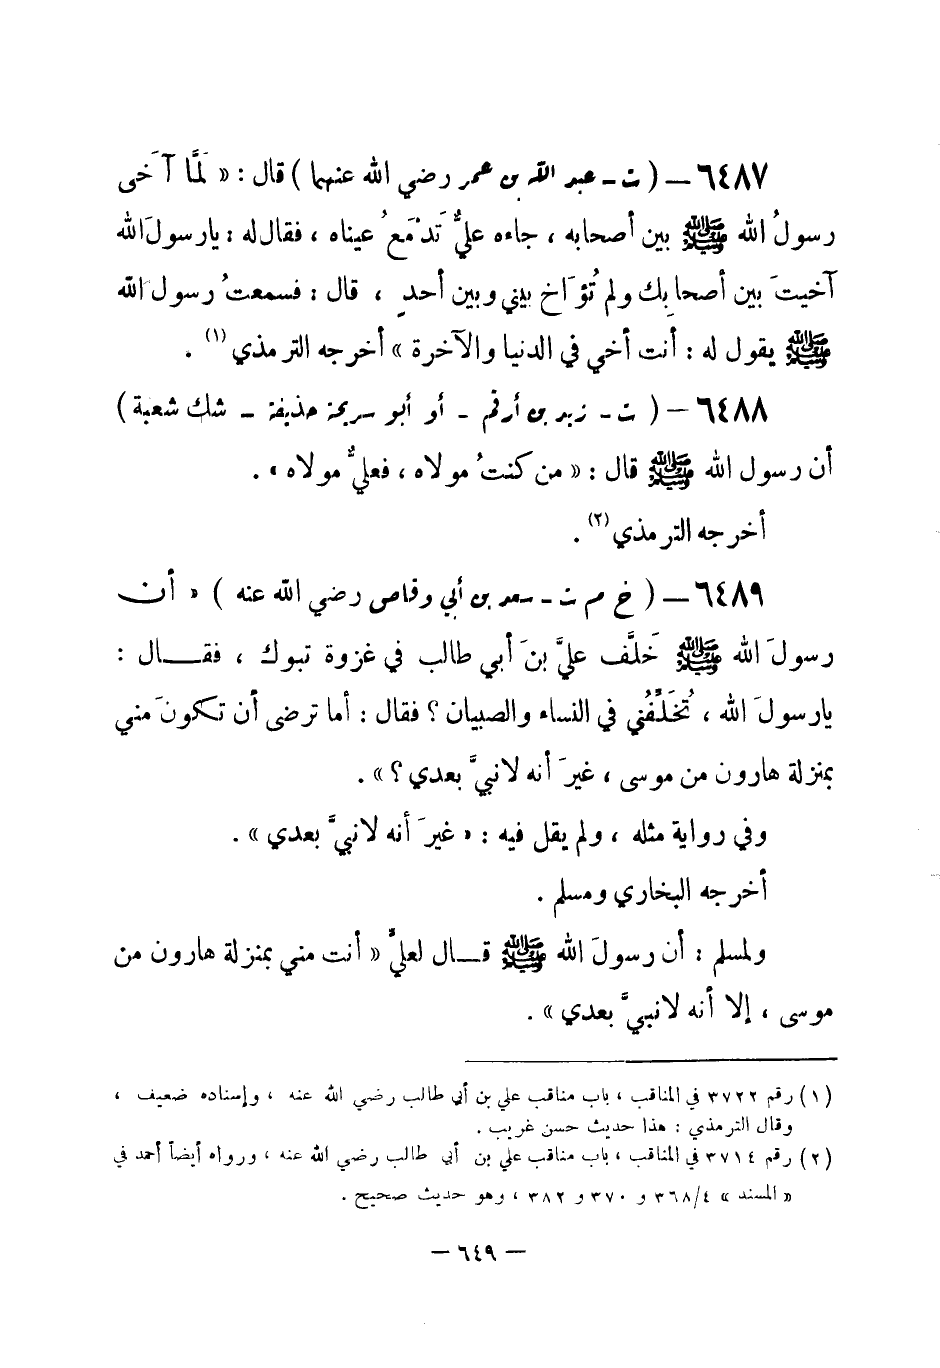 ٦٤٨٧ – ( ت - عبد الله بن عمر رضي الله عنهما ) قال : « لَمَّا آخَى
رسولُ الله ﷺ بين أصحابه ، جاءه عليٌّ تَدْمَعُ عيناه ، فقال له : يارسولَ الله
آخيتَ بين أصحابك ولم تُؤَاخِ بيني وبين أحدٍ ، قال : فسمعتُ رسول الله
ﷺ يقول له : أنت أخي في الدنيا والآخرة » أخرجه الترمذي (١) .
٦٤٨٨ – ( ت - زيد بن أرقم - أو أبو سريحة حذيفة - شك شعبة )
أن رسول الله ﷺ قال : « من كنتُ مولاه ، فعليٌّ مولاه » .
أخرجه الترمذي (٢) .
٦٤٨٩ – ( خ م ت - سعد بن أبي وقاص رضي الله عنه ) « أن
رسولَ الله ﷺ خَلَّف عليَّ بنَ أبي طالب في غزوة تبوك ، فقـــال :
يارسولَ الله ، تُخَلِّفُني في النساء والصبيان ؟ فقال : أما ترضى أن تكونَ مني
بمنزلة هارون من موسى ، غيرَ أنه لانبيَّ بعدي ؟ » .
وفي رواية مثله ، ولم يقل فيه : « غيرَ أنه لانبيَّ بعدي » .
أخرجه البخاري ومسلم .
ولمسلم : أن رسولَ الله ﷺ قـــال لعليٍّ « أنت مني بمنزلة هارون من
موسى ، إلا أنه لانبيَّ بعدي » .
(١) رقم ٣٧٢٢ في المناقب ، باب مناقب علي بن أبي طالب رضي الله عنه ، وإسناده ضعيف ،
وقال الترمذي : هذا حديث حسن غريب .
(٢) رقم ٣٧١٤ في المناقب ، باب مناقب علي بن أبي طالب رضي الله عنه ، ورواه أيضاً أحمد في
« المسند » ٣٦٨/٤ و ٣٧٠ و ٣٨٢ ، وهو حديث صحيح .
– ٦٤٩ –